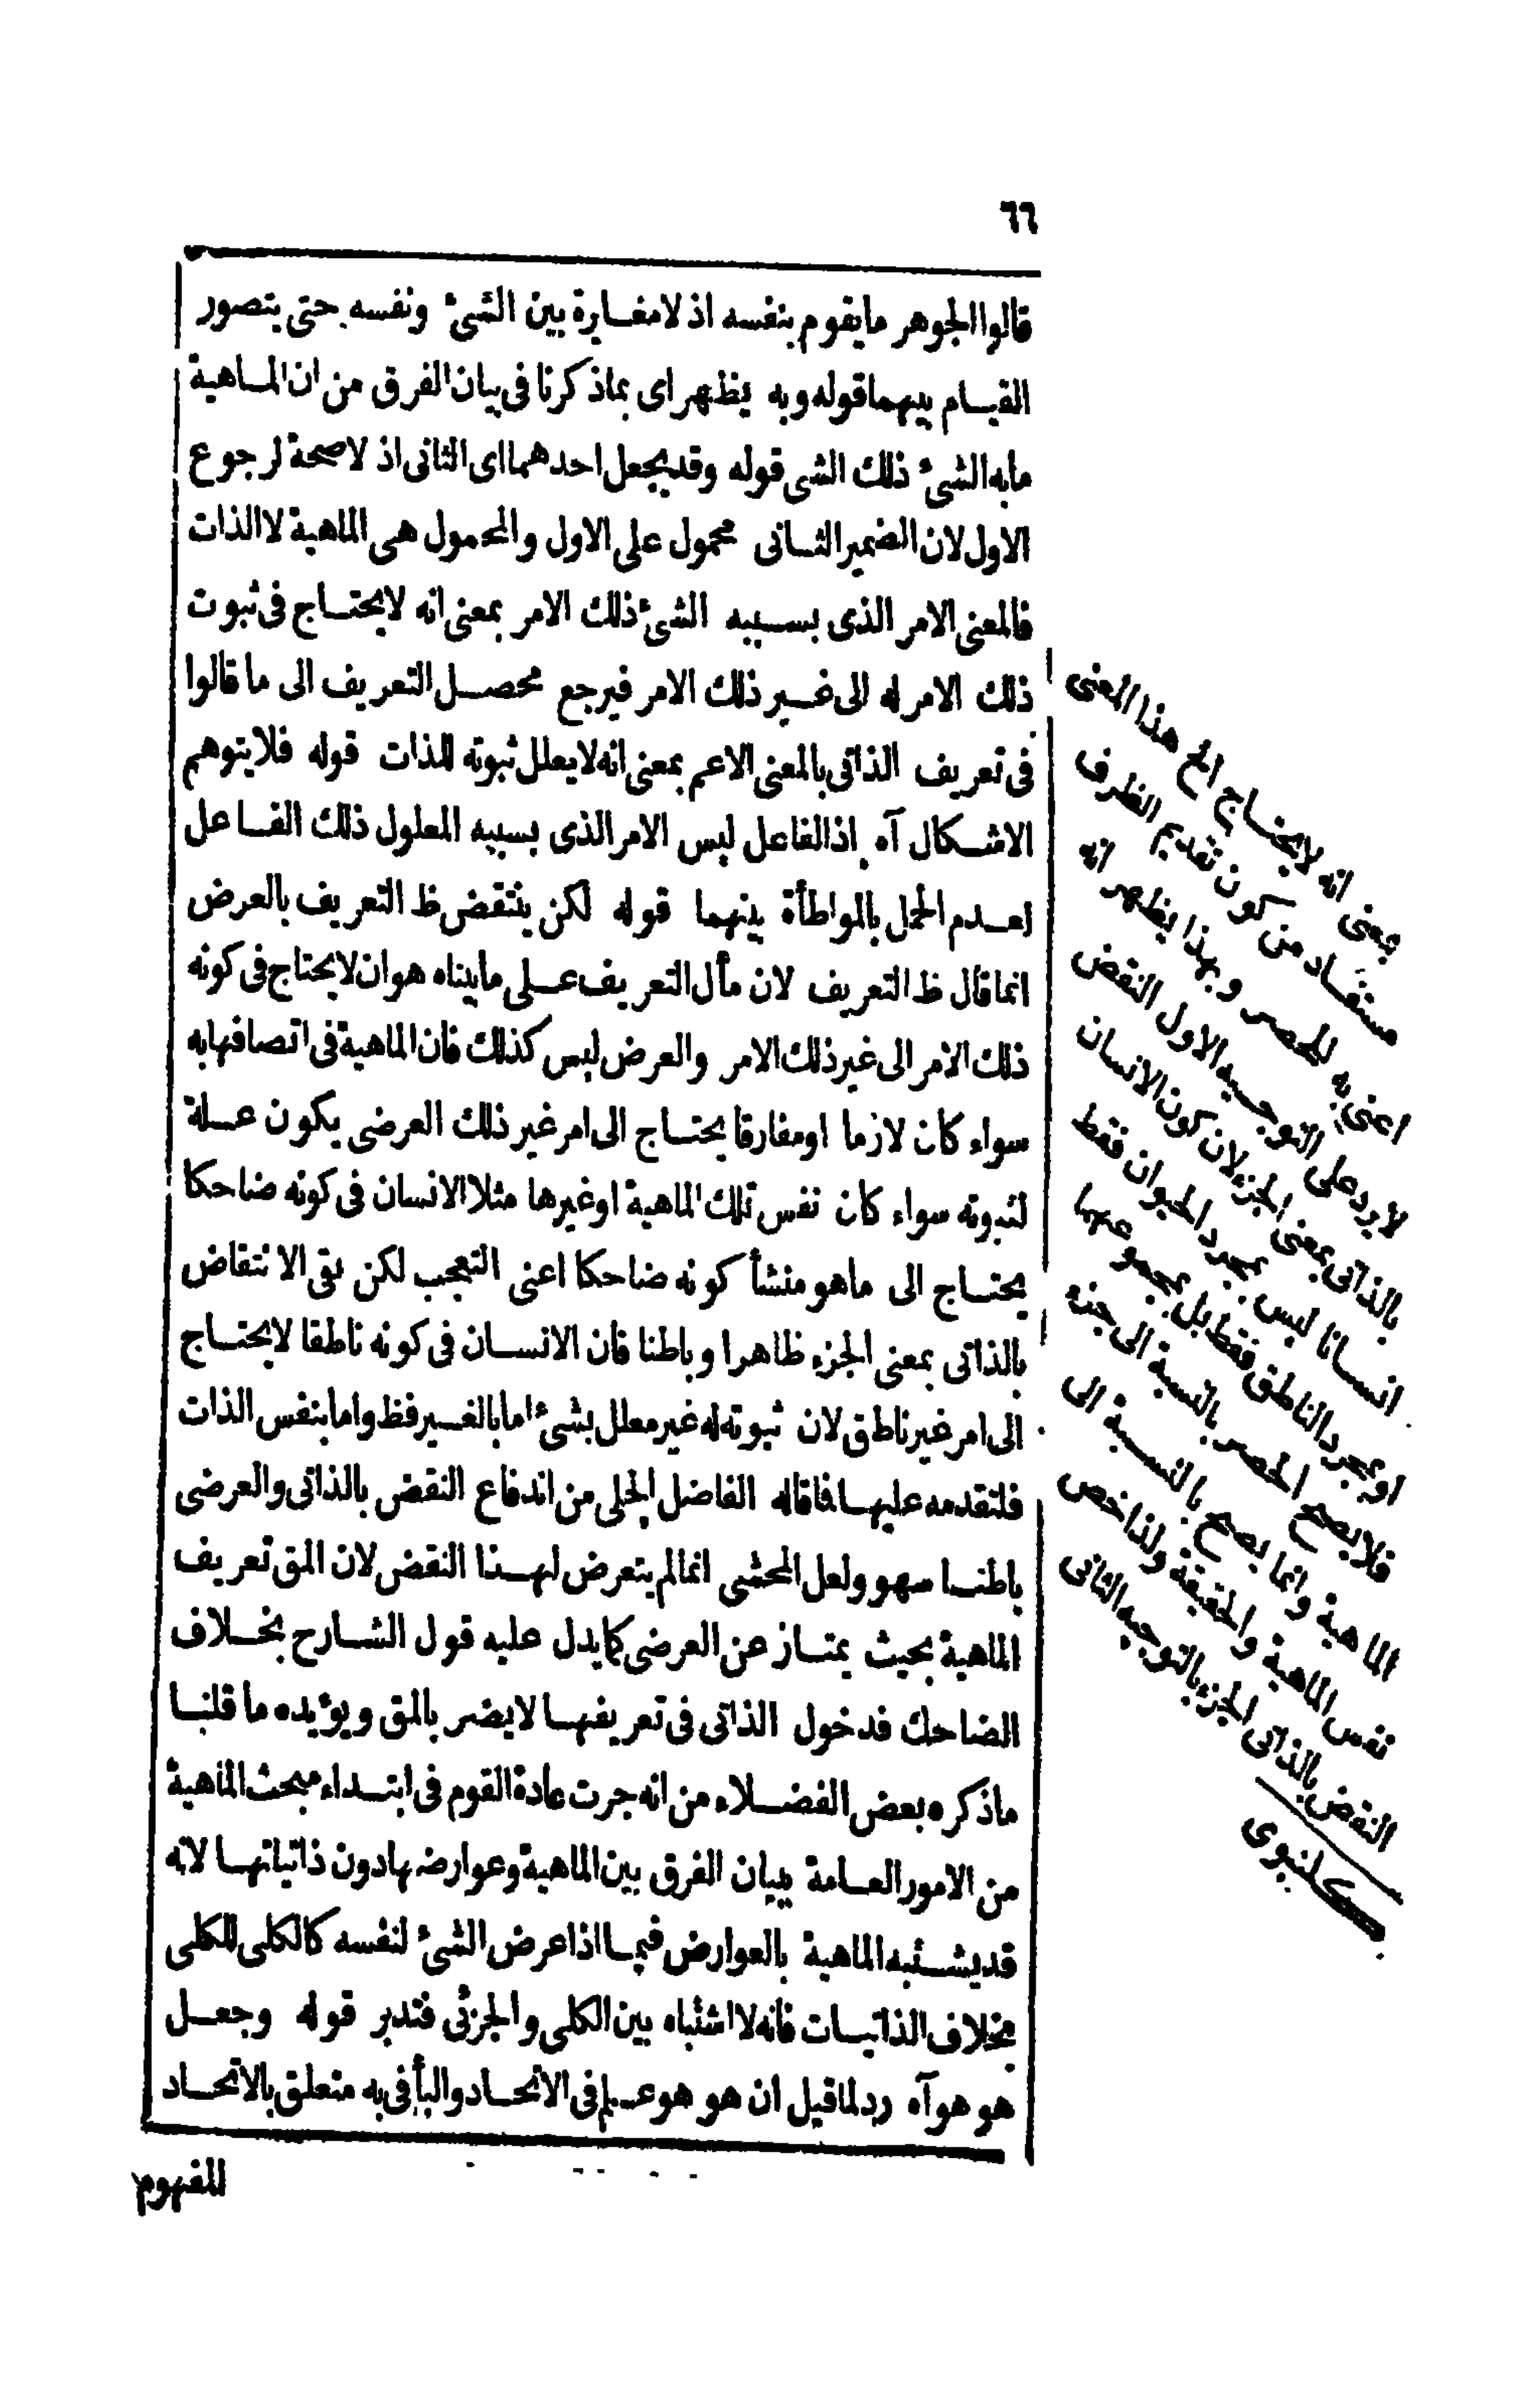 ٦٦
قالوا الجوهر مايقوم بنفسه اذ لامغايرة بين الشئ ونفسه حتى يتصور
القيام بينهما قوله وبه يظهر اى بما ذكرنا فى بيان الفرق من ان الماهية
مابه الشئ ذلك الشى قوله وقد يجعل احدهما اى الثانى اذ لاصحة لرجوع
الاول لان الضمير الثانى محمول على الاول والمحمول هى الماهية لا الذات
فالمعنى الامر الذى بسببه الشئ ذلك الامر بمعنى انه لايحتاج فى ثبوت
ذلك الامر له الى غير ذلك الامر فيرجع محصل التعريف الى ما قالوا
فى تعريف الذاتى بالمعنى الاعم بمعنى انه لايعلل ثبوته للذات قوله فلايتوهم
الاشكال آه اذ الفاعل ليس الامر الذى بسببه المعلول ذلك الفاعل
لعدم الحمل بالمواطأة بينهما قوله لكن ينتقض ظ التعريف بالعرض
انما قال ظ التعريف لان مأل التعريف على مابيناه هو ان لايحتاج فى كونه
ذلك الامر الى غير ذلك الامر والعرض ليس كذلك فان الماهية فى اتصافها به
سواء كان لازما اومفارقا يحتاج الى امر غير ذلك العرضى يكون علة
لثبوته سواء كان نفس تلك الماهية اوغيرها مثلا الانسان فى كونه ضاحكا
يحتاج الى ماهو منشأ كونه ضاحكا اعنى التعجب لكن بقى الانتقاض
بالذاتى بمعنى الجزء ظاهرا وباطنا فان الانسان فى كونه ناطقا لايحتاج
الى امر غير ناطق لان ثبوته له غير معلل بشئ اما بالغير فظ واما بنفس الذات
فلتقدمه عليها فاقاله الفاضل الجلى من اندفاع النقض بالذاتى والعرضى
باطنا سهو ولعل المحشى انمالم يتعرض لهذا النقض لان المق تعريف
الماهية بحيث يمتاز عن العرضى كما يدل عليه قول الشارح بخلاف
الضاحك فدخول الذاتى فى تعريفها لايضر بالمق ويؤيده ما قلنا
ماذكره بعض الفضلاء من انه جرت عادة القوم فى ابتداء مبحث الماهية
من الامور العامة ببيان الفرق بين الماهية وعوارضها دون ذاتياتها لانه
قد يشتبه الماهية بالعوارض فيما اذا عرض الشئ لنفسه كالكلى للكلى
بخلاف الذاتيات فانه لااشتباه بين الكلى والجزئى فتدبر قوله وجعل
هو هو آه رد لما قيل ان هو هو علم فى الاتحاد والبأ فى به متعلق بالاتحاد
للفهوم
بمعنى انه لايحتاج الخ هذا المعنى
مستفاد من كون تقديم الظرف
اعنى به للحصر وبهذا يظهر انه
لايرد على التوجيه الاول النقض
بالذاتى بمعنى الجزء لان كون الانسان
انسانا ليس بمجرد الحيوان فقط
او بمجرد الناطق فقط بل بمجموعهما
فلا يصح الحصر بالنسبة الى جزء
الماهية وانما يصح بالنسبة الى
نفس الماهية والحقيقة ولذا خص
النقض بالذاتى الجزء بالتوجيه الثانى
كلنبوى